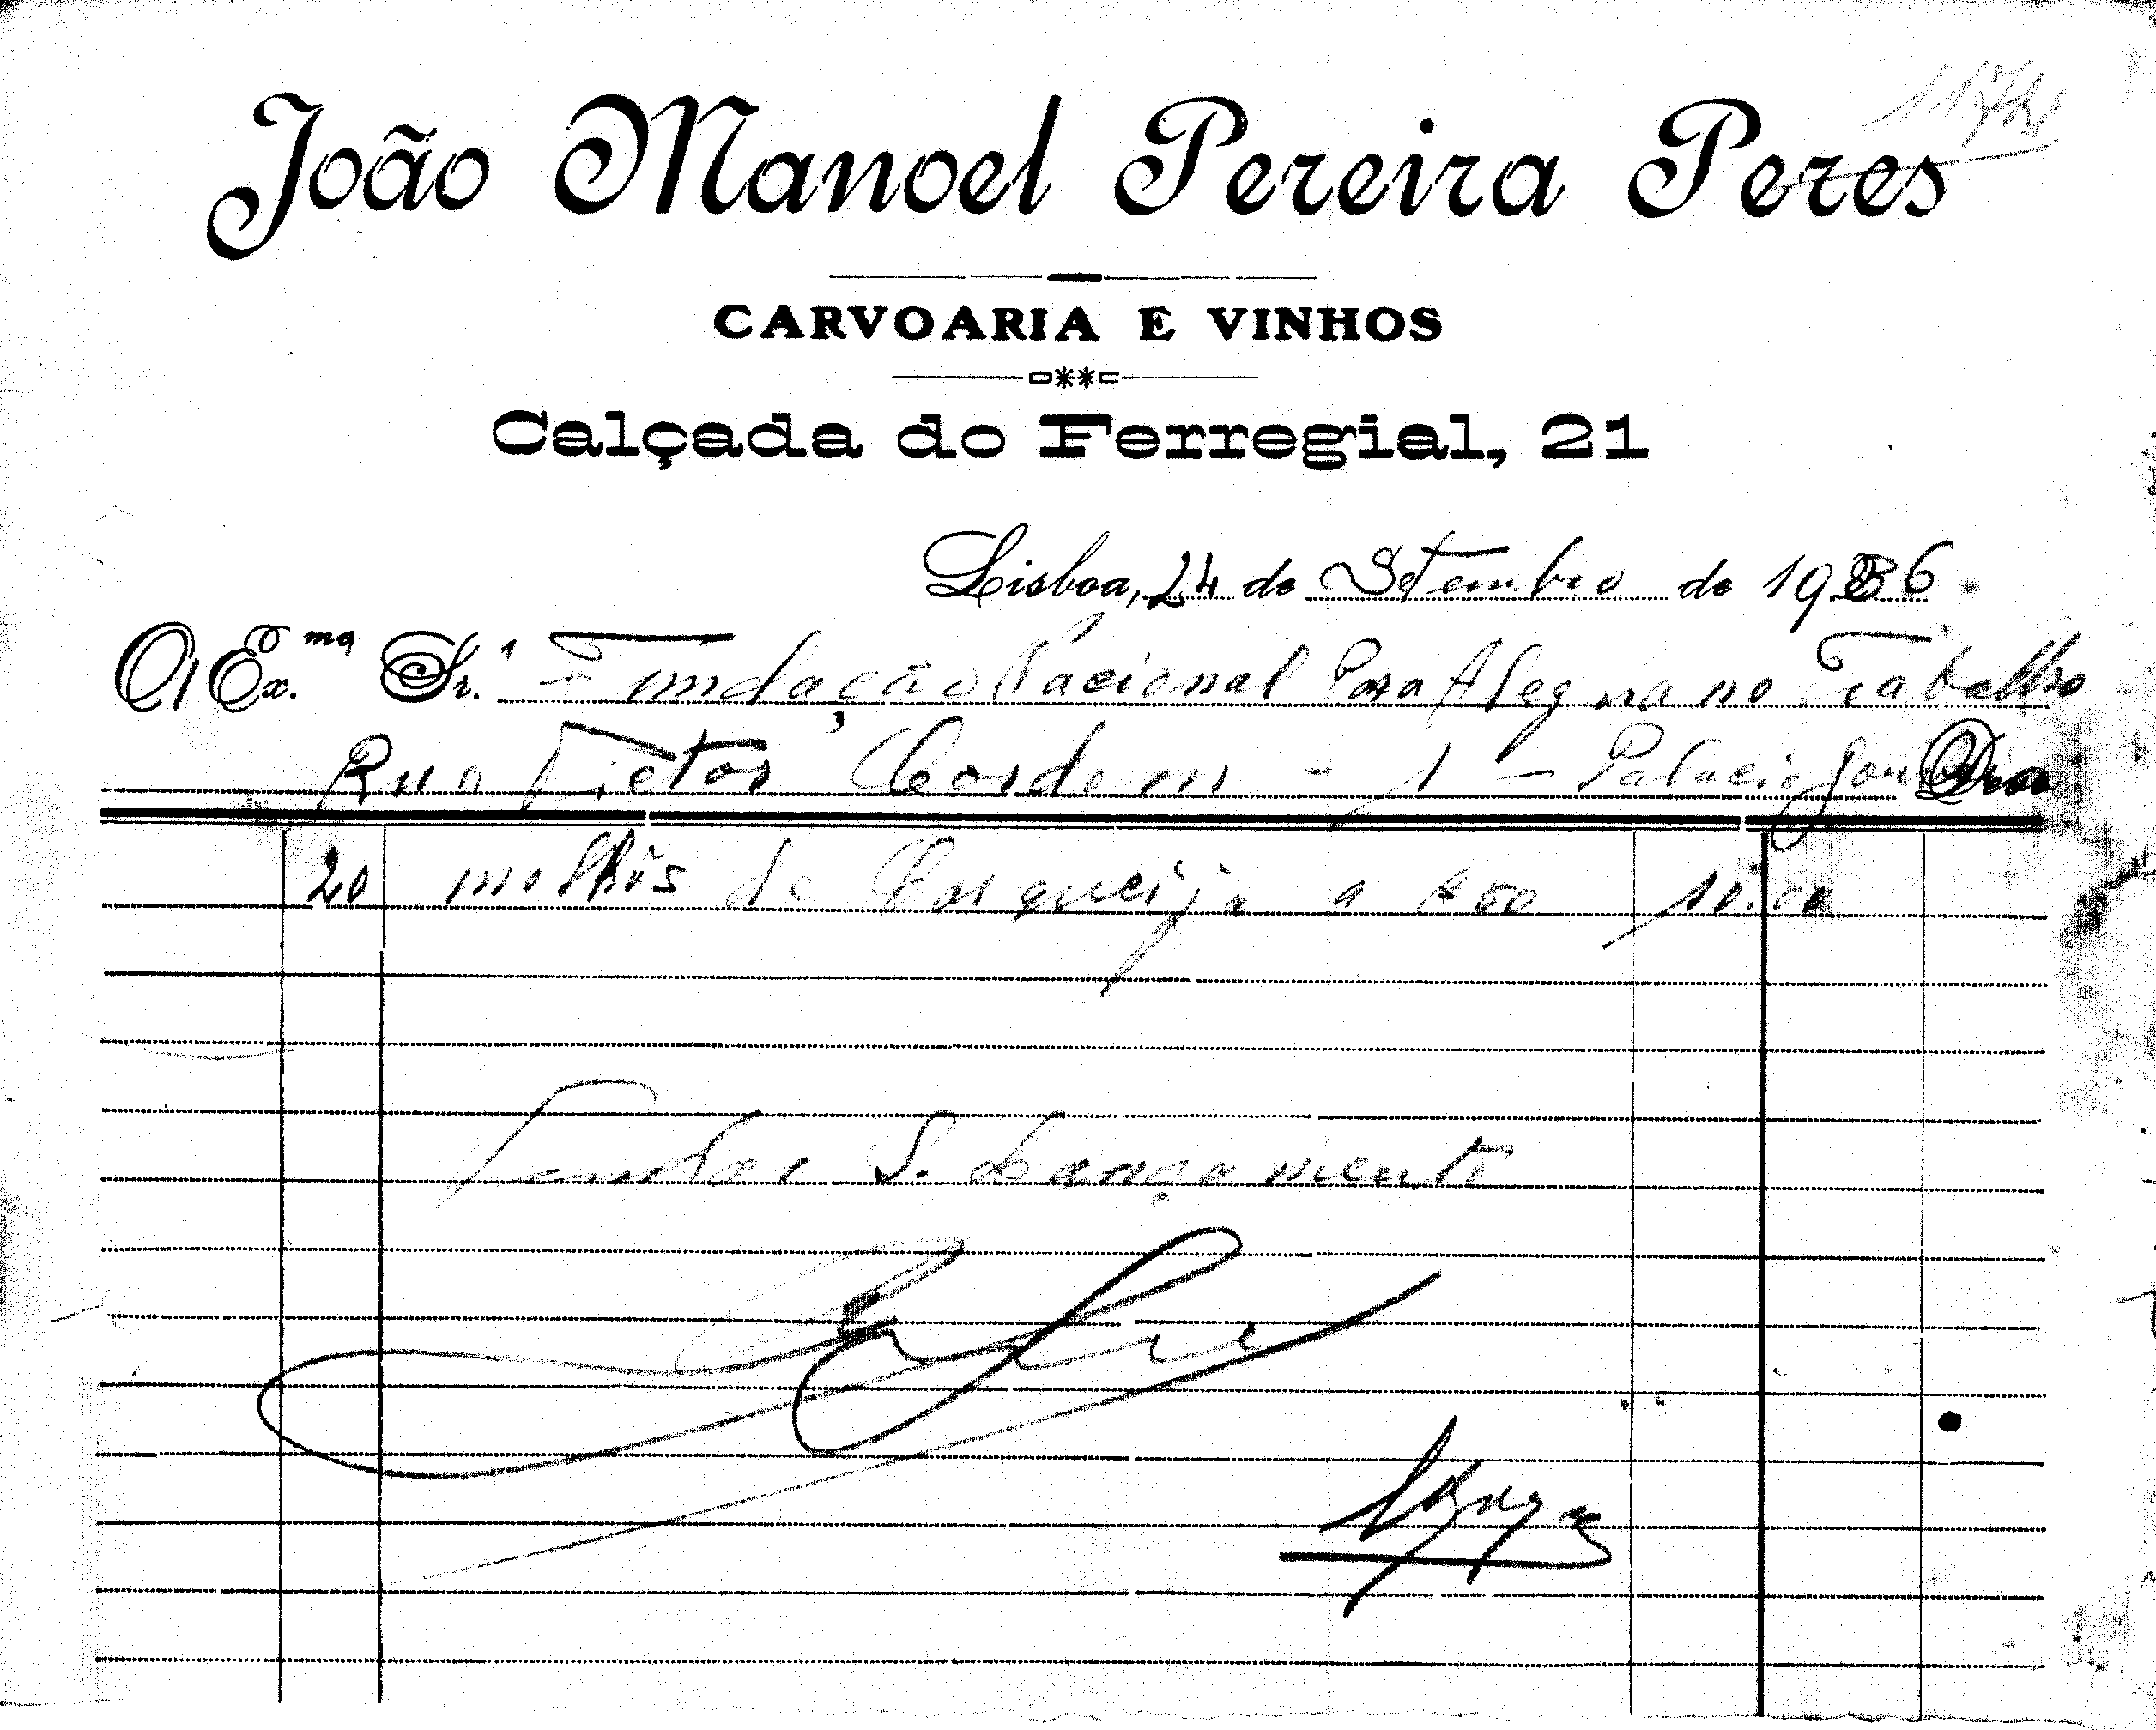 João Manoel Pereira Peres
CARVOARIA E VINHOS
Calçada do Ferregial, 21
Lisboa, 24 de Setembro de 1936.
A Ex.ma Sr.a Fundação Nacional Para Alegria no Trabalho
Rua Victor Cordon - 1 - Palacio
20 molhos de a $50 10.00